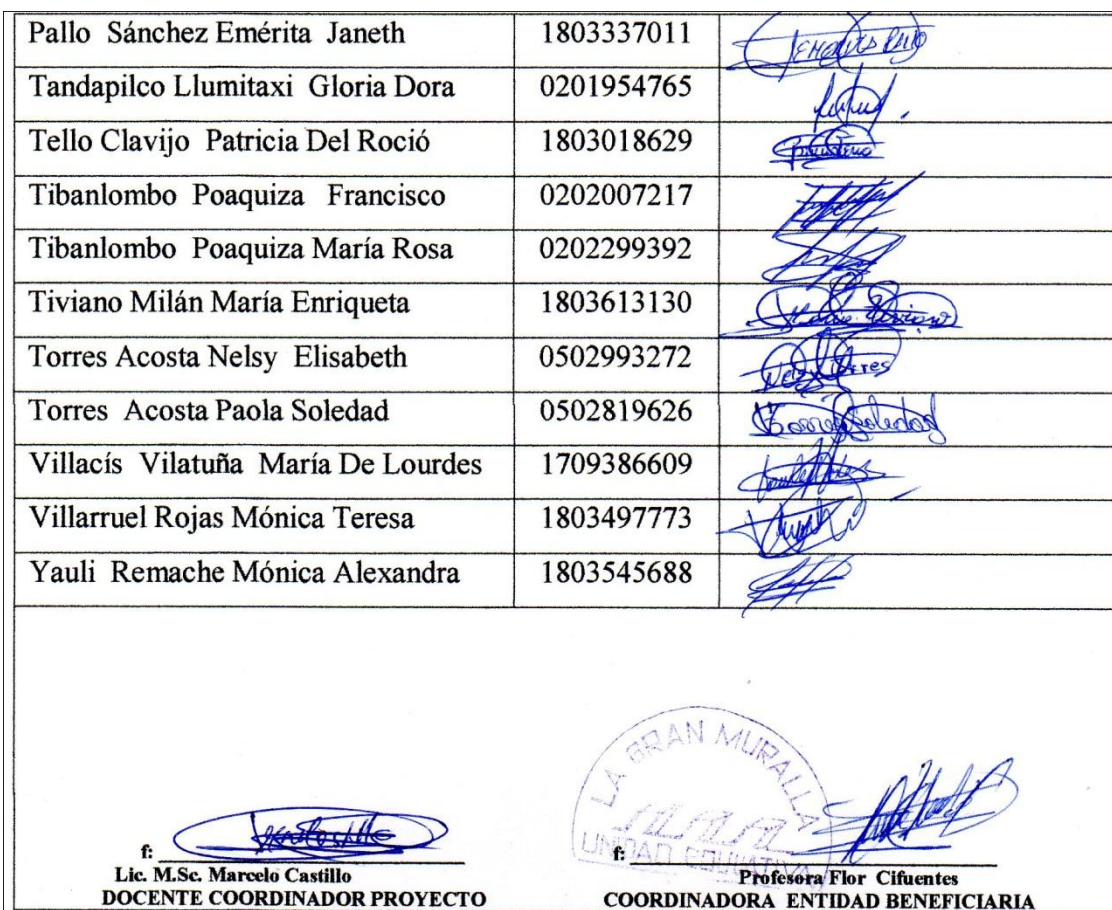 Pallo Sánchez Emérita Janeth 1803337011
Tandapilco Llumitaxi Gloria Dora 0201954765
Tello Clavijo Patricia Del Roció 1803018629
Tibanlombo Poaquiza Francisco 0202007217
Tibanlombo Poaquiza María Rosa 0202299392
Tiviano Milán María Enriqueta 1803613130
Torres Acosta Nelsy Elisabeth 0502993272
Torres Acosta Paola Soledad 0502819626
Villacís Vilatuña María De Lourdes 1709386609
Villarruel Rojas Mónica Teresa 1803497773
Yauli Remache Mónica Alexandra 1803545688
LA GRAN MURALLA
UNIDAD EDUCATIVA
f: f:
Lic. M.Sc. Marcelo Castillo Profesora Flor Cifuentes
DOCENTE COORDINADOR PROYECTO COORDINADORA ENTIDAD BENEFICIARIA